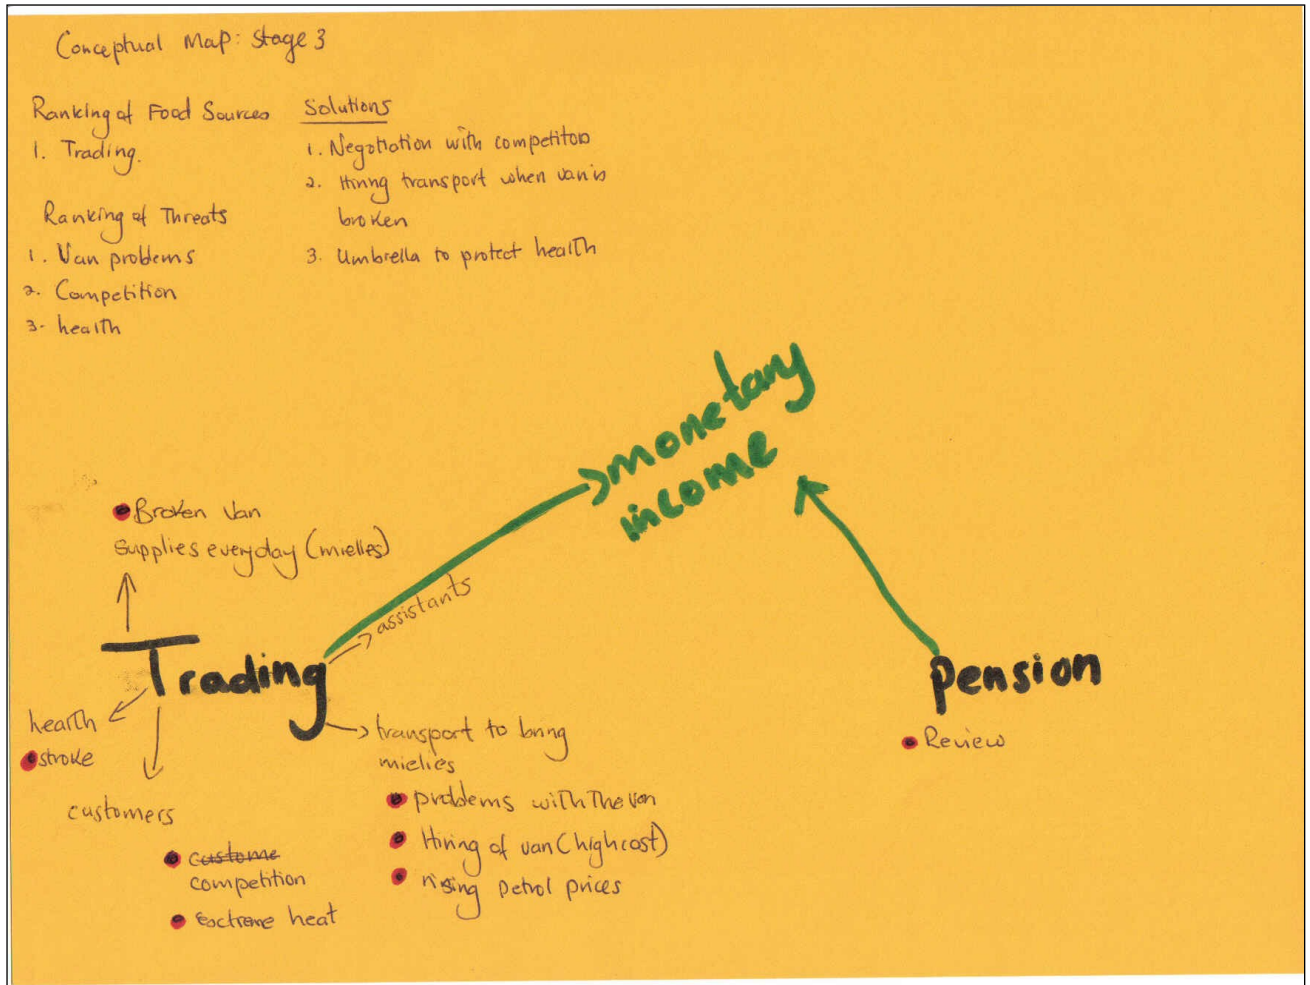 Conceptual Map: Stage 3
Ranking of Food Sources
1. Trading.
Ranking of Threats
1. Van problems
2. Competition
3. health
Solutions
1. Negotiation with competitors
2. Hiring transport when van is
broken
3. Umbrella to protect health
monetary
income
Broken Van
Supplies everyday (mielies)
assistants
Trading
health
stroke
customers
custome
competition
extreme heat
transport to bring
mielies
problems with the van
Hiring of van (high cost)
rising petrol prices
Pension
Review